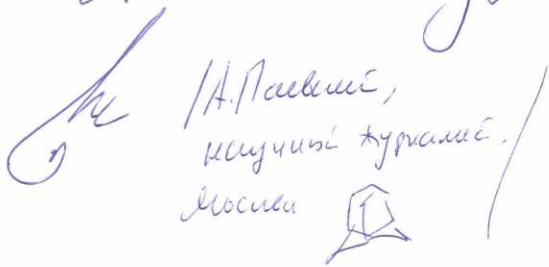 /А. Паевский,
научный журналист.
Москва /